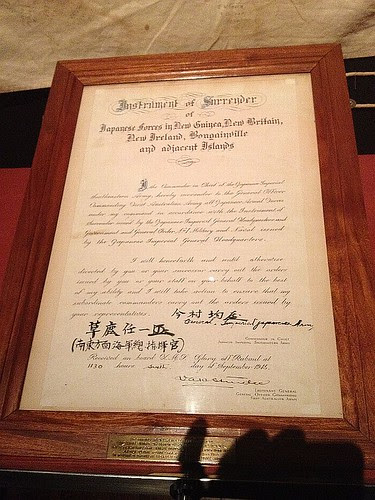 Instrument of Surrender
of
Japanese Forces in New Guinea, New Britain,
New Ireland, Bougainville
and adjacent Islands
I the Commander in Chief of the Japanese Imperial
Southeastern Army hereby surrender to the General Officer
Commanding First Australian Army all Japanese Armed Forces
under my command in accordance with the Instrument of
Surrender issued by the Japanese Imperial General Headquarters and
Government and General Order No 1 Military and Naval issued
by the Japanese Imperial General Headquarters.
I will henceforth and until otherwise
directed by you or your successor carry out the orders
issued by you or your staff on your behalf to the best
of my ability and I will take action to ensure that my
subordinate commanders carry out the orders issued by
your representatives.
今村 均
General, Imperial Japanese Army
草鹿任一
Commander in Chief
Japanese Imperial Southeastern Army
(南東方面海軍總指揮官)
Received on board H.M.S. Glory off Rabaul at
1130 hours sixth day of September 1945.
Lieutenant General
General Officer Commanding
First Australian Army